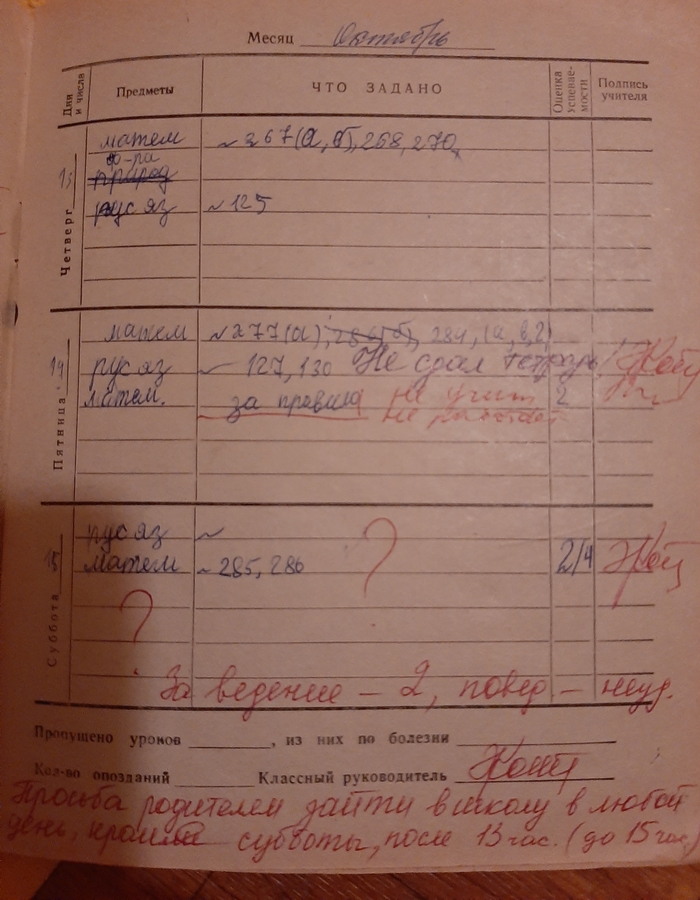 Месяц Октябрь
Дни и числа Предметы ЧТО ЗАДАНО Оценка успеваемости Подпись учителя
Четверг 13
матем ~267(а, б), 268, 270
ф-ра
природ
рус яз ~125
Пятница 14
матем ~277(а), 286(б), 284, (а, в, г)
рус яз ~ 127, 130 Не сдал тетрадь!
матем. за правила не учит 2
не работает
Суббота 15
рус яз ~
матем ~285, 286 ? 2/4
?
За ведение – 2, повед – неуд.
Пропущено уроков , из них по болезни
Кол-во опозданий Классный руководитель
Просьба родителям зайти в школу в любой
день, кроме субботы, после 13 час. (до 15 час.)